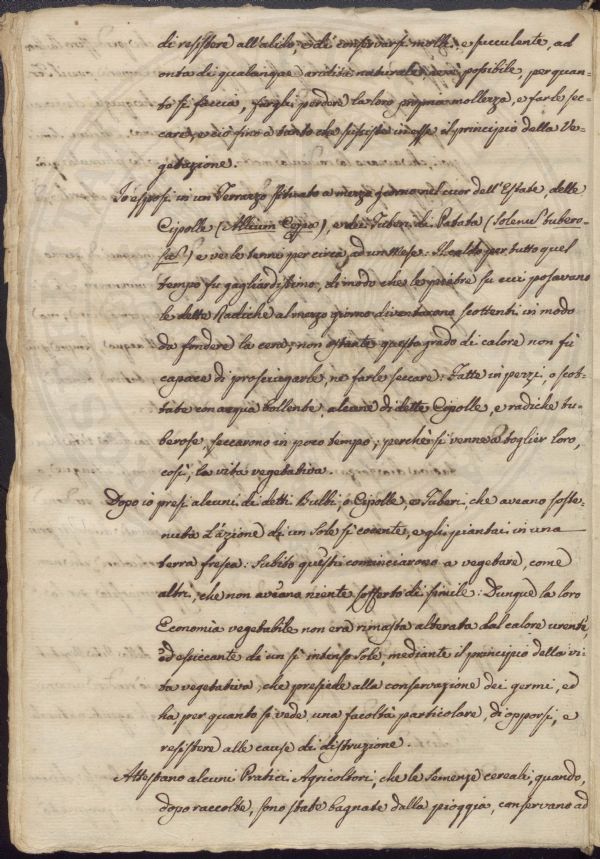 di resistere all'alido, e di conservarsi molli, e succulente, ad
onta di qualunque aridità naturale; nè è possibile, per quan-
to si faccia, fargli perdere la loro propria mollezza, e farle sec-
care, e ciò fino a tanto che sussiste in esse il principio della Ve-
getazione.
Io esposi in un Terrazzo situato a mezzo giorno nel cuor dell'Estate, delle
Cipolle (Allium Cepa), e dei Tuberi di Patata (Solenus tubero-
sus) e ve le tenni per circa ad un Mese: Il caldo per tutto quel
tempo fu gagliardissimo, di modo che le pietre su cui posavano
le dette Radiche al mezzo giorno diventavano scottenti, in modo
da fondere la cera; non ostante questo grado di calore non fù
capace di prosciugarle, nè farle seccare: Fatte in pezzi, o scot-
tate con acqua bollente, alcune di dette Cipolle, e radiche tu-
berose, seccarono in poco tempo; perchè si venne a toglier loro,
così, la vita vegetativa.
Dopo io presi alcuni di detti Bulbi, o Cipolle, e Tuberi, che aveano soste-
nuta l'azione di un Sole sì cocente, e gli piantai in una
terra fresca: Subito questi cominciarono a vegetare, come
altri, che non aveano niente sofferto di simile: Dunque la loro
Economia vegetabile non era rimasta alterata dal calore urente,
ed essiccante di un sì intenso Sole, mediante il principio della vi-
ta vegetativa, che presiede alla conservazione dei germi, ed
ha per quanto si vede una facoltà particolare, di opporsi, e
resistere alle cause di distruzione.
Attestano alcuni Pratici Agricoltori, che le Semenze cereali, quando,
dopo raccolte, sono state bagnate dalla pioggia, conservano ad